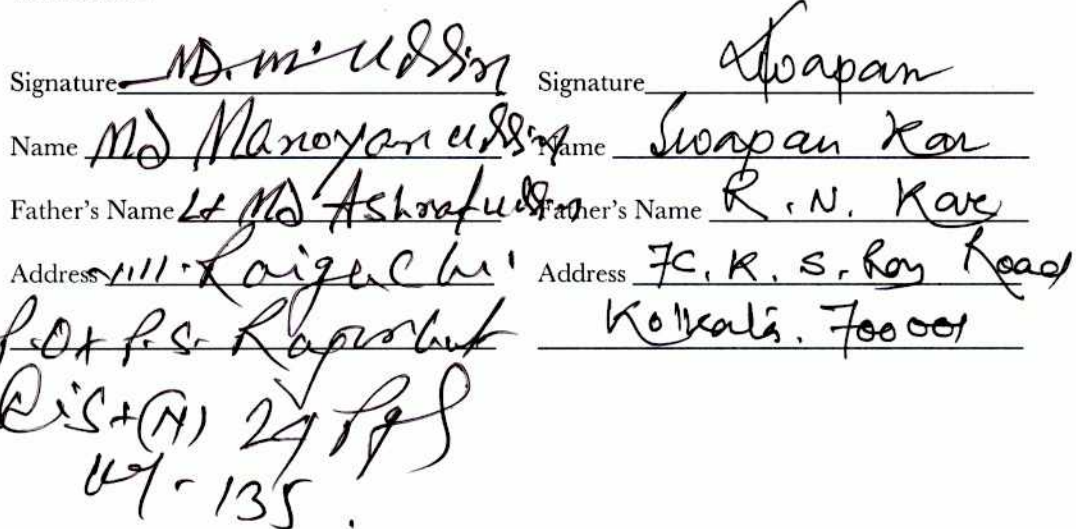 Signature MD. M. Uddin
Name Md Manoyan uddin
Father's Name Lt Md Ashrafuddin
Address vill. Raigachi
P.O+ P.S. Rajarhat
Dist (N) 24 Pgs
- 135.
Signature Swapan
Name Swapan Kar
Father's Name R. N. Kar
Address 7C, K. S. Roy Road
Kolkata. 700001